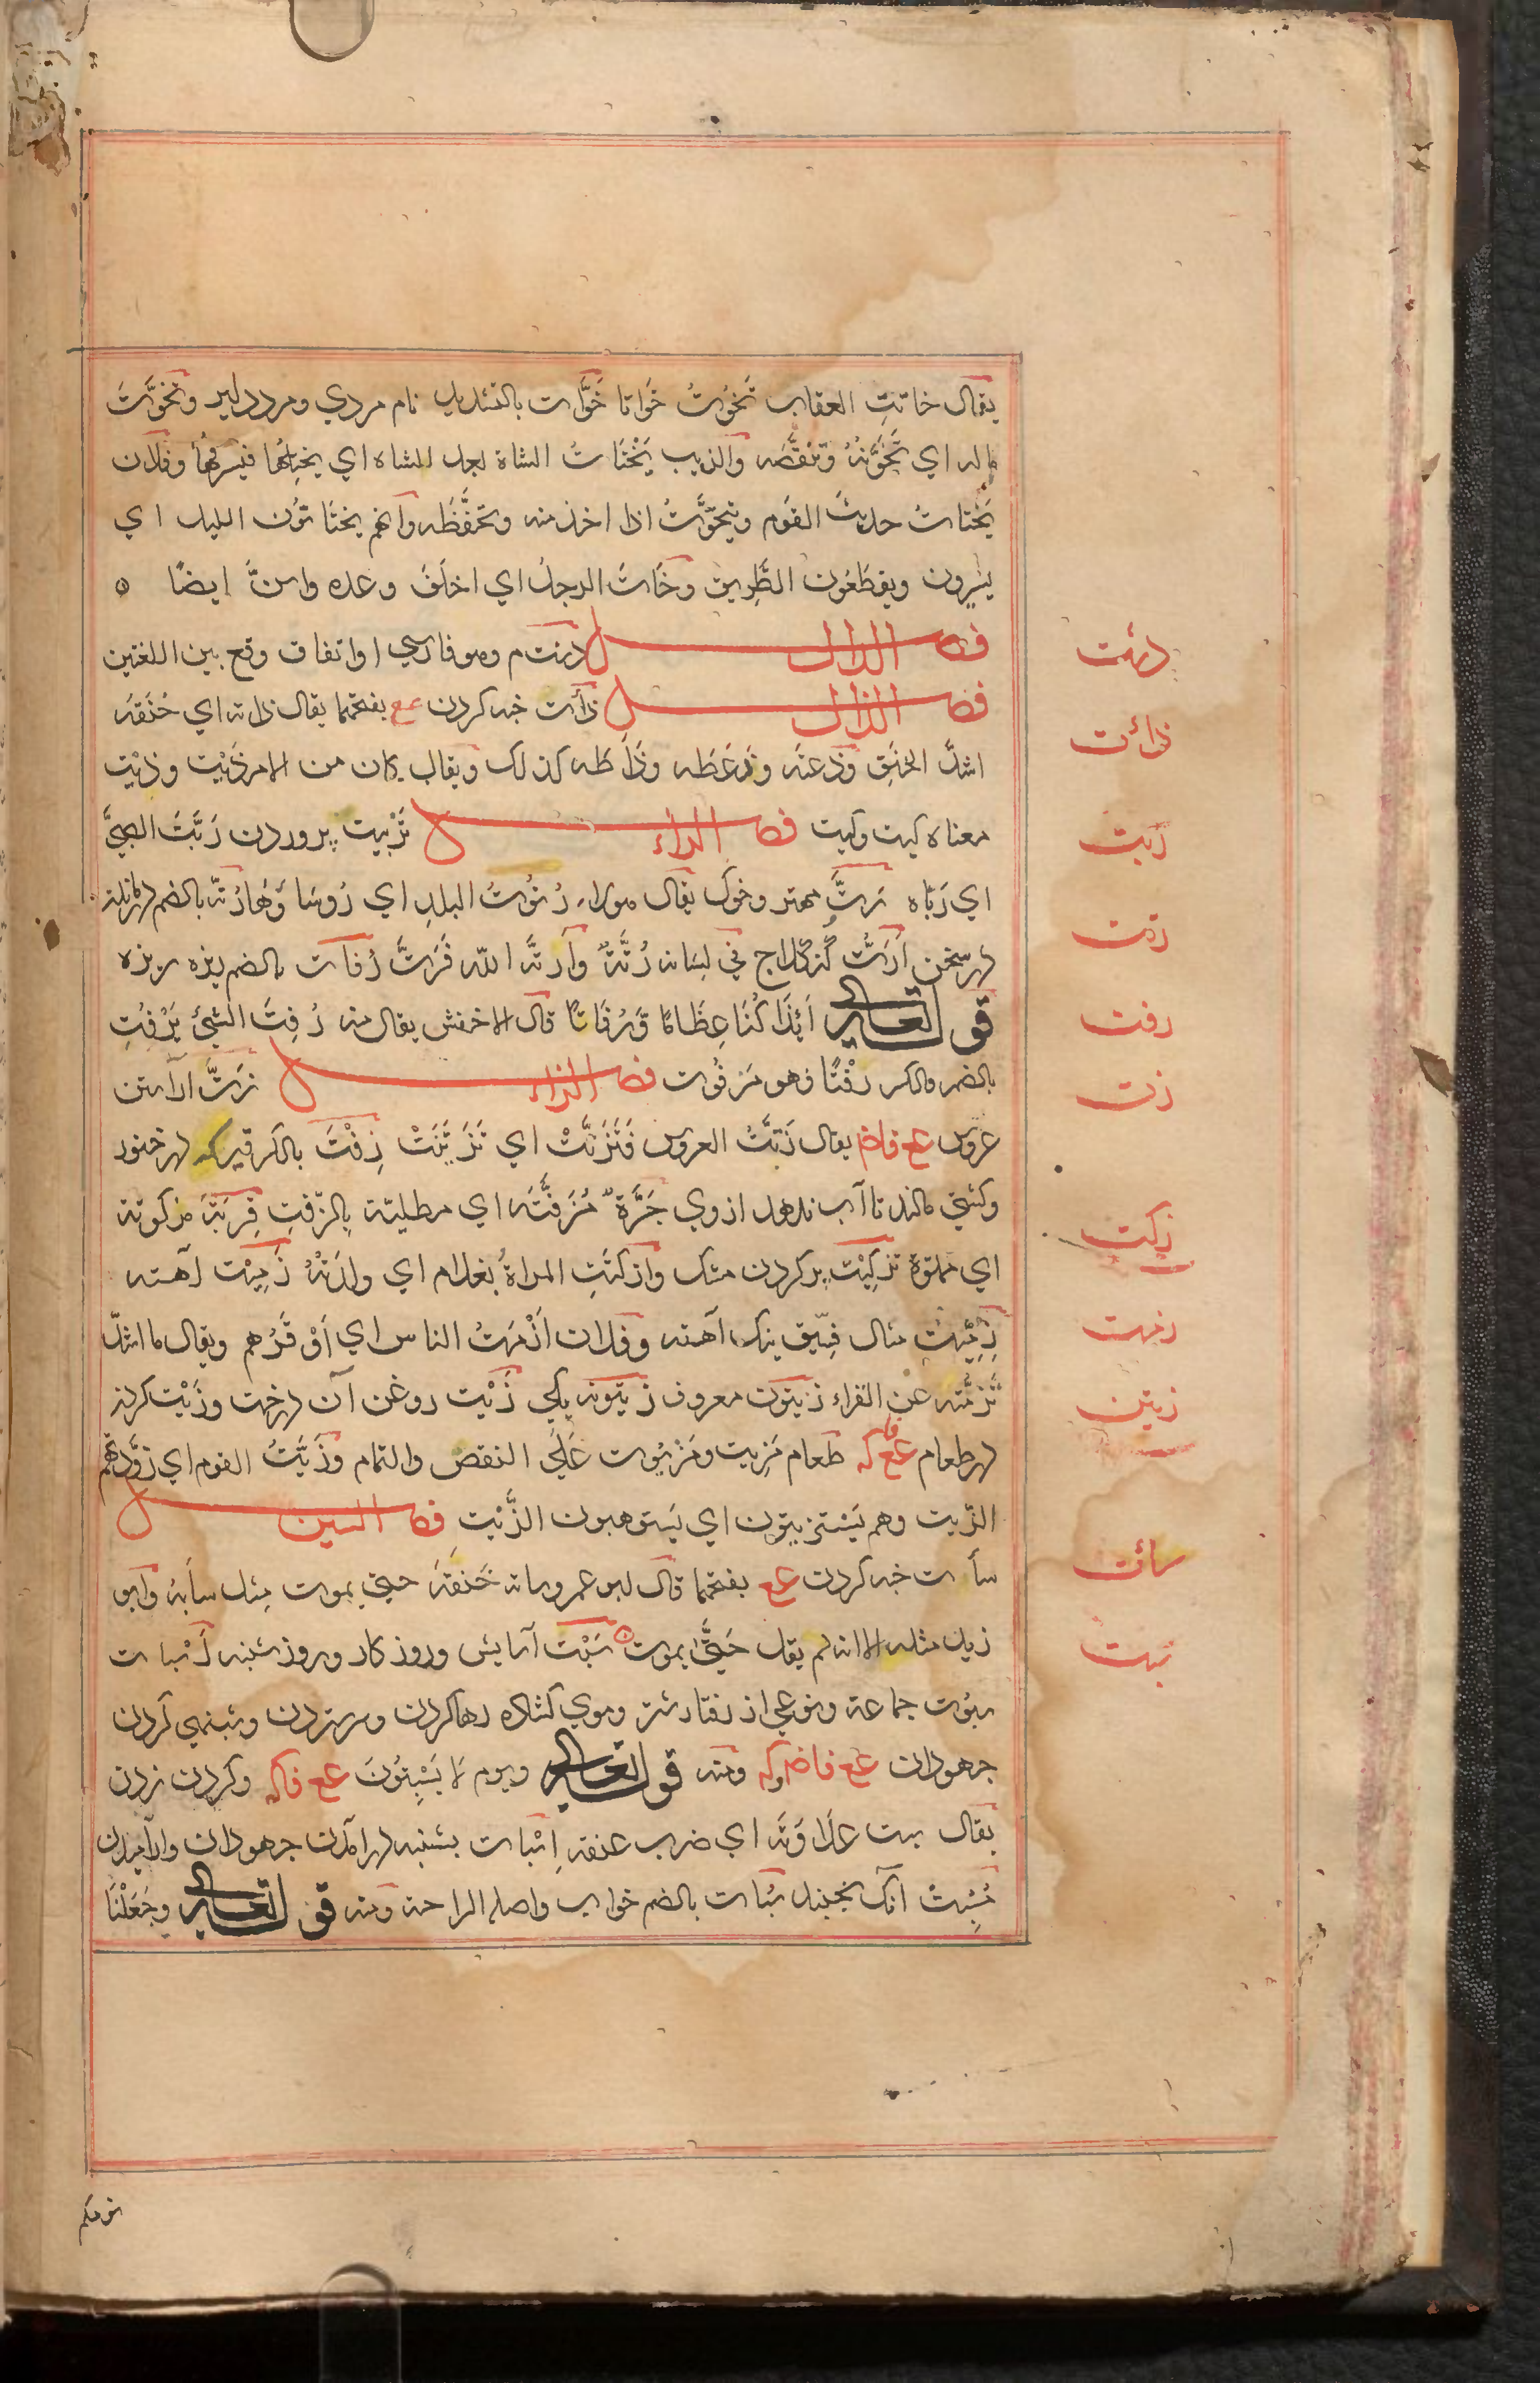 يقال خاتتِ العقاب تَخُوتُ خَوَاتا خَوَّات بالتشديد نام مردي ومرد دلير وتَخَوَّتَ
ماله اي تَخَوَّنَهُ وتنقَّصَه والذيب يَخْتَاتُ الشاة بعد الشاه اي يختِلُها فيسرقُها وفلان
يَختاتُ حديث القوم ويتخوَّتُ اذا اخذ منه وتحفَّظَه وانهم يختَاتُون الليل اي
يسيرون ويقطَعُون الطَّرِيق وخَاتَ الرجلُ اي اخلَفَ وعده واسنَّ ايضًا
فصل الدال دشت م وهو فارسي او اتفاق وقع بين اللغتين
فصل الذال ذأت خبه كردن عع بفتحهما يقال ذاته اي خَنَقَه
اشدَّ الخَنِق وذعته وذَعَطَه وذَأَطَه كذلك ويقال كان من الامر ذَيْت وذَيْت
معناه كيت وكيت فصل الراء تَرْبيت پروردن رَبَّتَ الصبيَّ
اي رَبّاه رَتٌّ مهتر وخوك يقال هولاء رُتُوتُ البلد اي رُوسَاوُهَا رُتّة بالضم
در سخن اَرَتُّ في لسانه رُتَّةٌ وآرتَّه اللّه فَرَتَّ رُفات بالضم ريزه ريزه
قوله تعالى أَئِذَا كُنَّا عِظَامًا وَّرُفَاتًا قال الاخفش يقال منه رُفِتَ الشيئ يَرْفِتُ
بالضم والكسر رفْتًا فهو مَرْفُوت فصل الزاء زتٌّ آراستن
عروس عع فاضم يقال زَتَتُّ العروس فَتَزَتَّتْ اي تَزَيَّنَتْ زِفْتَ بالكسر قير كه در خنور
وكشتي مالند تا آب ندهد ازوي جَرَّةٌ مُزَفَّتَه اي مطليّة بِالزّفتِ قِربَة مزكوتة
اي مملوّة تزكِيْت پر كردن مشك وازكتَتِ المراةُ بغلام اي ولدَتْهُ زَمِيْت آهسته
زِمِّيْت مثال فسّيق نيك آهسته وفلان اَزْمَتُ الناس اي اَوْقَرُهم ويقال ما اشدّ
تَزمُّته عن الفراء زيتون معروف زيتونه يكي زَيْت روغن آن درخت وزَيْت كردن
در طعام عع فا كه طعام مَزِيت ومَزْيُوت عَلَي النقص والتمام وزَيَّتُ القوم اي زوَّدتهم
الزّيت وهم يَسْتزيتون اي يَستوهبون الزَّيْت فصل السين
سأت خبه كردن عع بفتحهما قال ابو عمرو ساته خَنَقَه حتي يموت مثل سأبه وابو
زيد مثله الا انه لم يقل حَتّٰي يموت سَبْت آسايش وروزكار وروز شنبه اَسْبات
سبُوت جماعة ونوعي از رفتار شتر وموي كشاده رها كردن وسر ستردن وشنبهي كردن
جهودان عع فاضم وكه ومنه قوله تعالى ويوم لَا يَسْبِتُونَ عع فاكه وكردن زدن
يقال سبت علَاوَتَه اي ضرب عنقه اِسْبات بشنبه درآمدن جهودان وآراميدن
مُسْبِتْ آنك نجنبد سُبَات بالضم خواب واصله الراحة ومنه قوله تعالى وجَعَلْنَا
دشت
ذائت
ربت
رتت
رفت
زتت
زكت
زمت
زيتن
سائت
سبت
نومكم